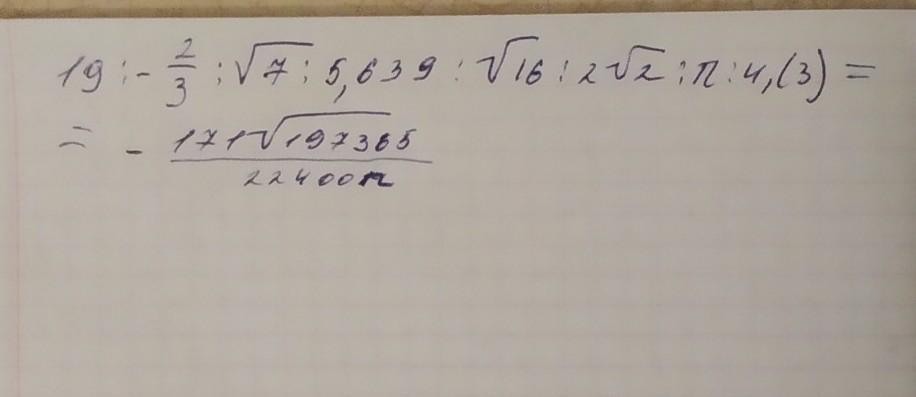 19 : - 2/3 : √7 : 5,639 : √16 : 2√2 : π : 4,(3) =
= - 171√197365/22400π